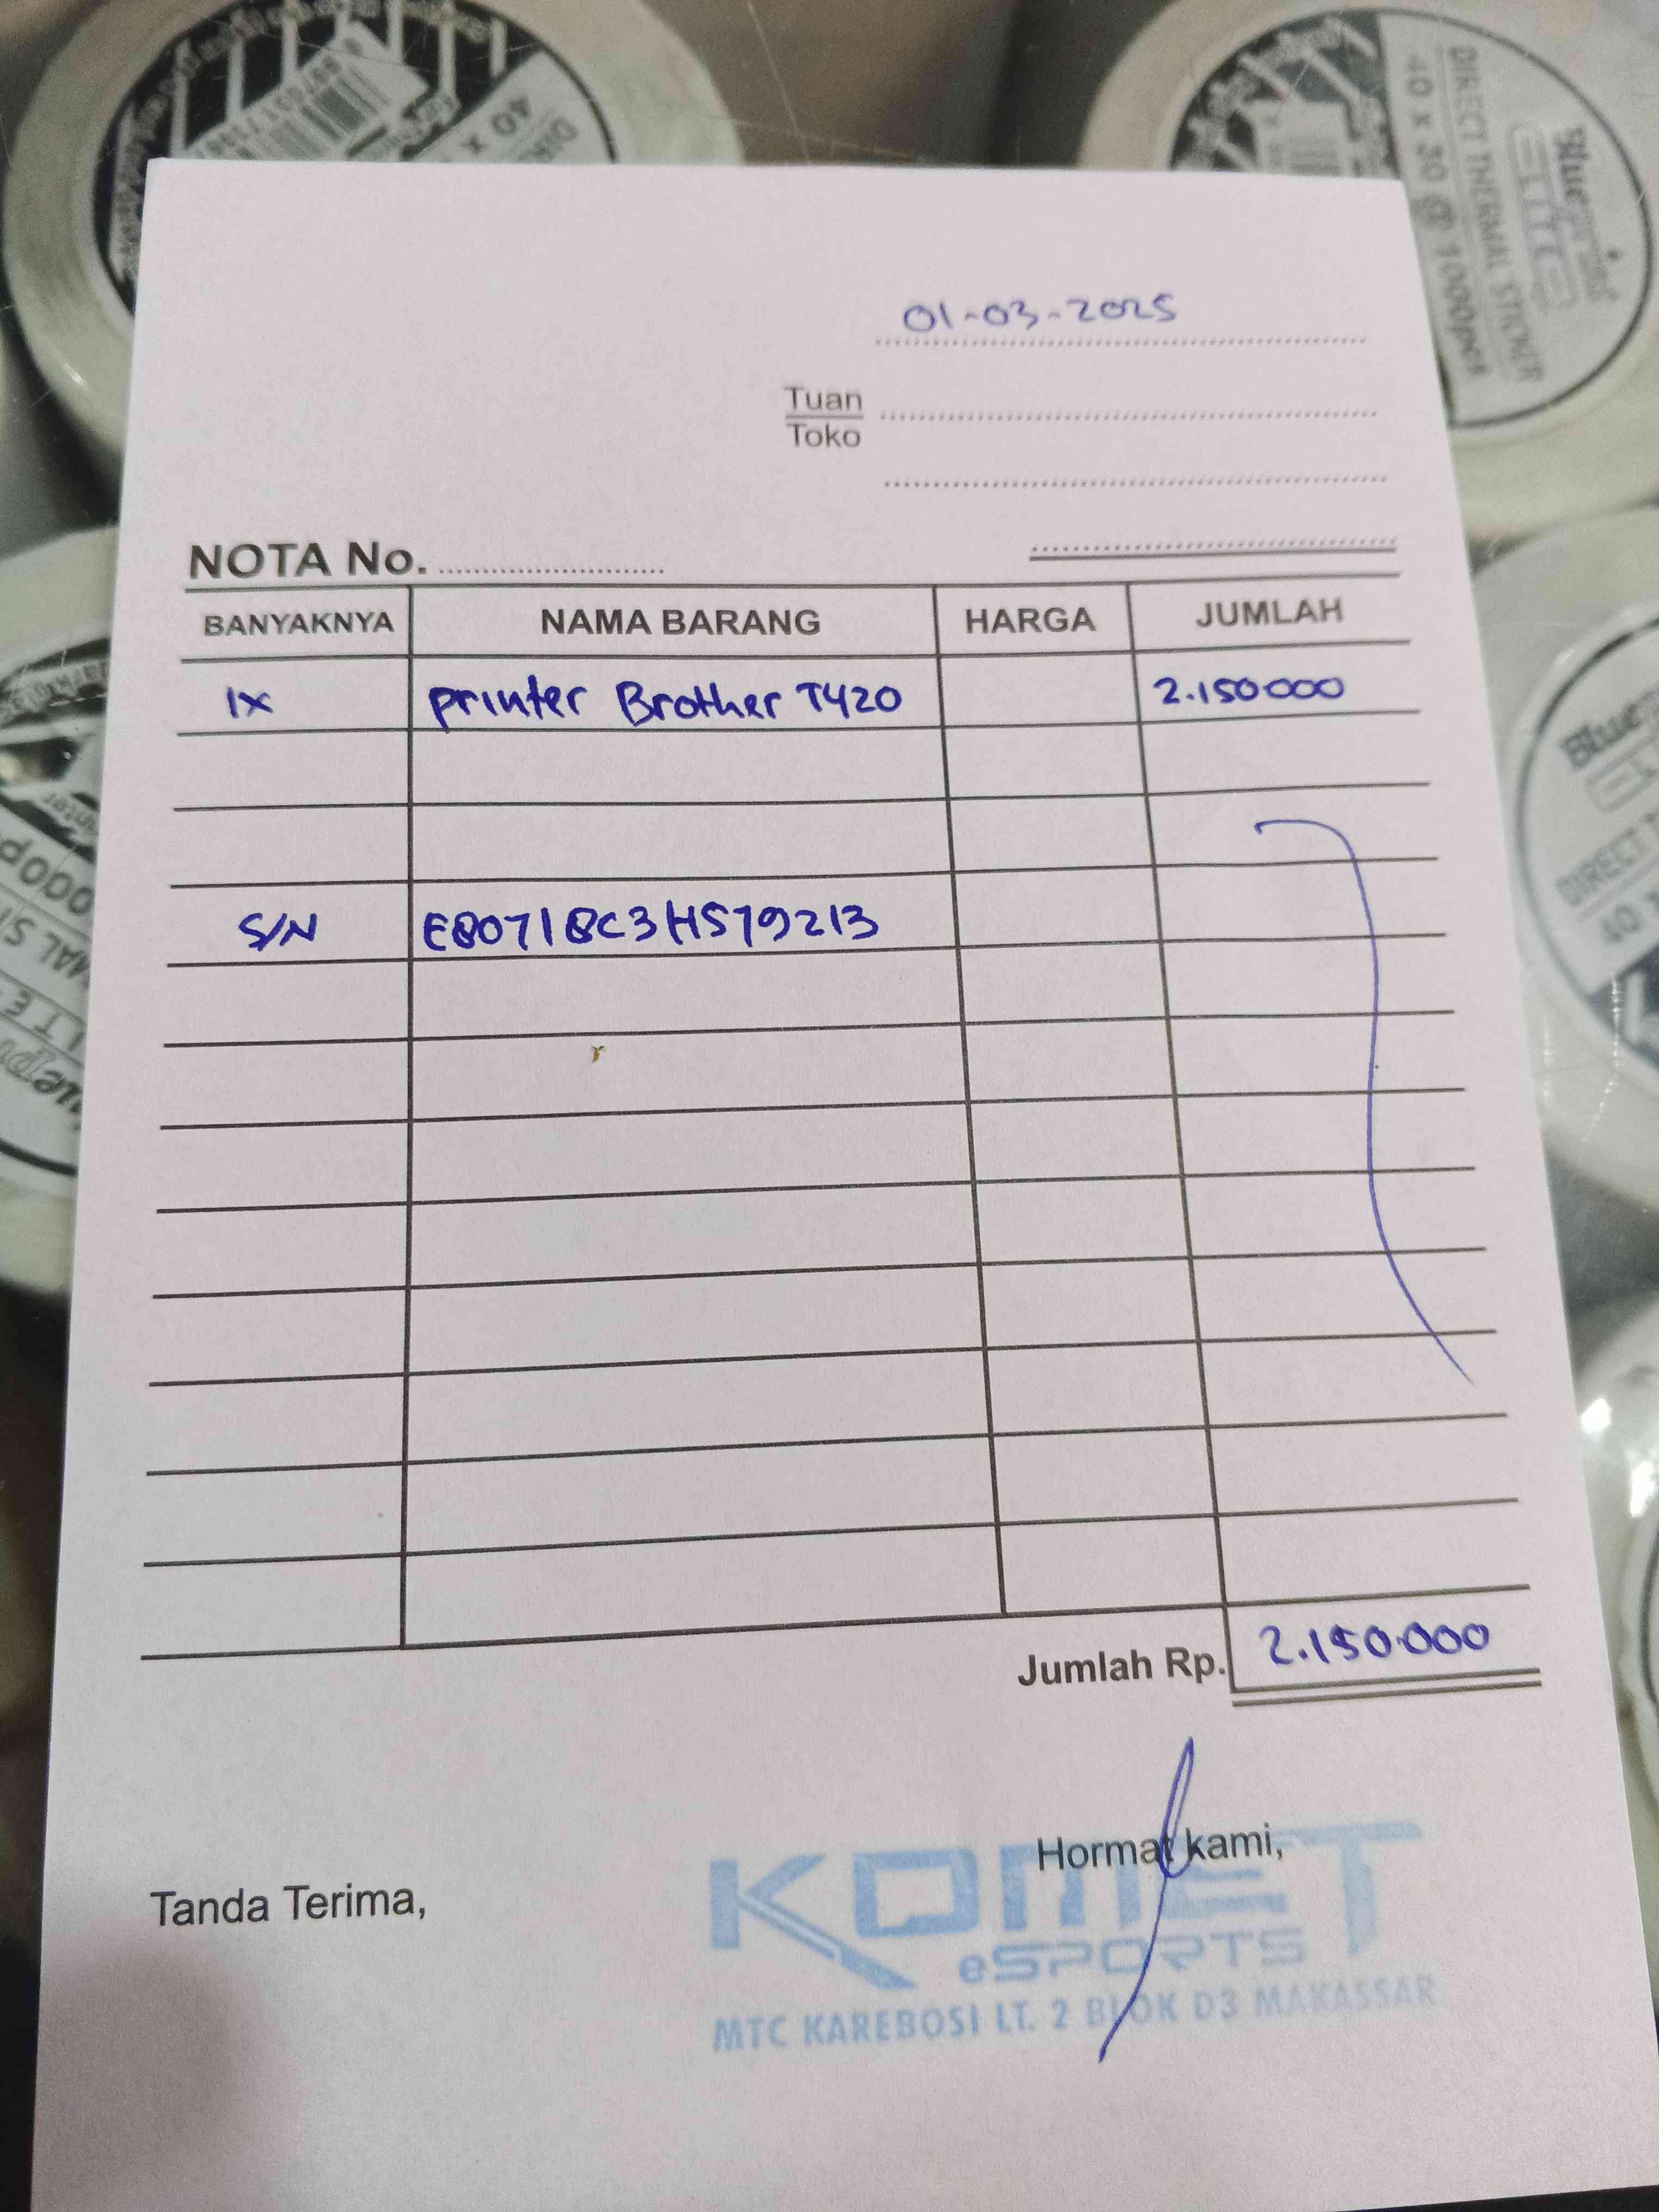 01-03-2025
Tuan
Toko
NOTA No.
BANYAKNYA NAMA BARANG HARGA JUMLAH
1x printer Brother T420 2.150000
S/N E80718C3H579213
Jumlah Rp. 2.150.000
Tanda Terima,
Hormat kami,
KOMET
eSPORTS
MTC KAREBOSI LT. 2 BLOK D3 MAKASSAR
Blueprint
LITE
DIRECT THERMAL STICKER
40 x 30 @ 1000pcs